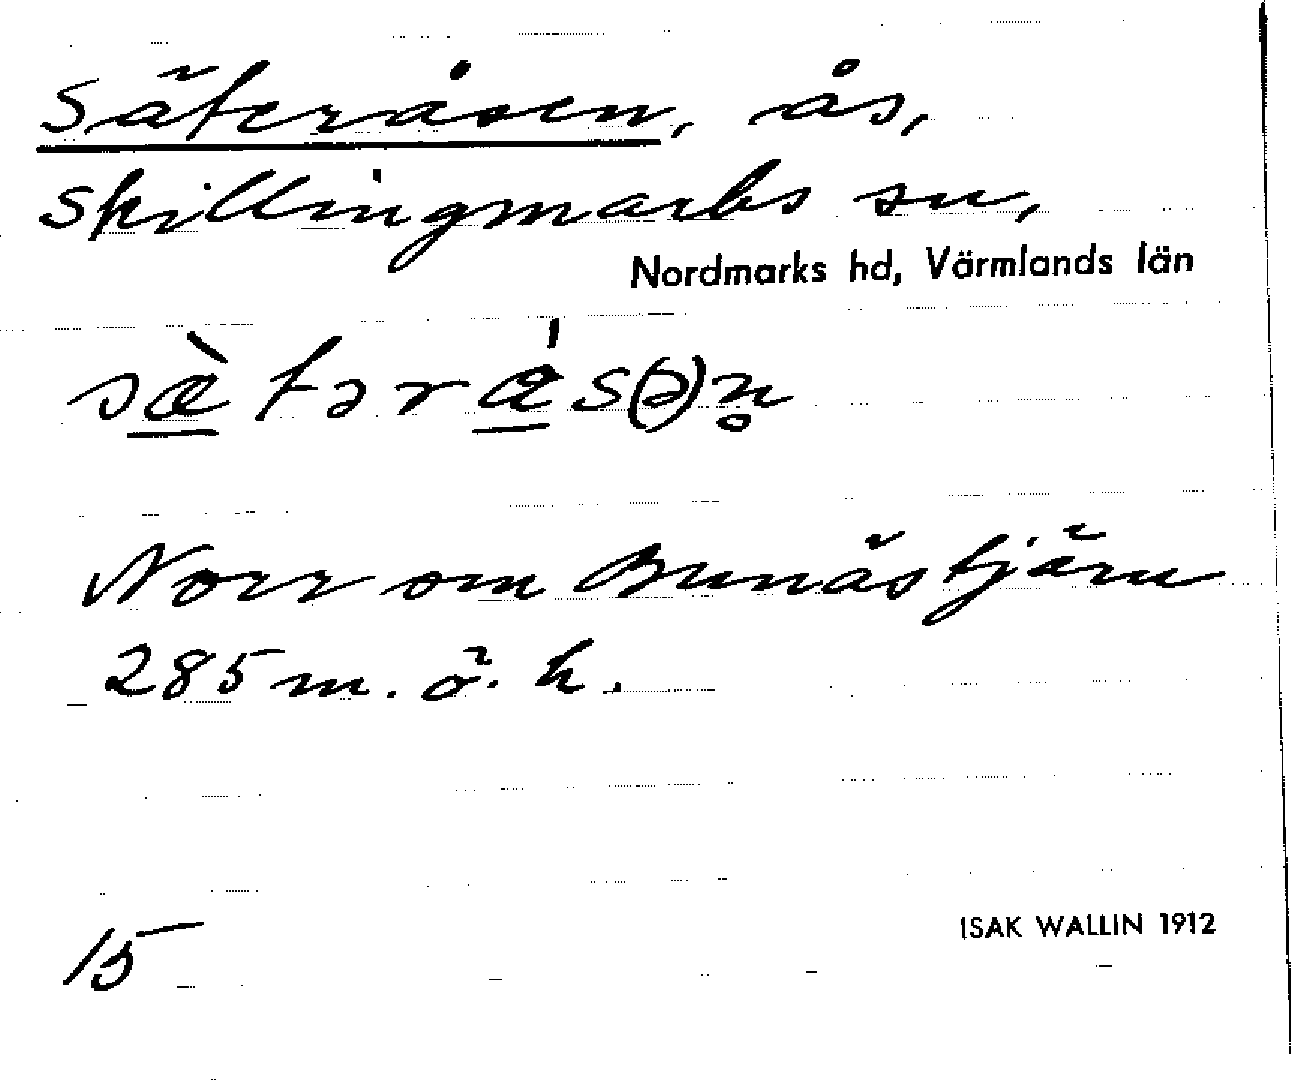 Säteråsen, ås,
Skillingmarks sn,
Nordmarks hd, Värmlands län
sæ̲̀tərǻ̲s(ə)n̥
Norr om Bunästjärn
285 m. ö. h.
15
ISAK WALLIN 1912